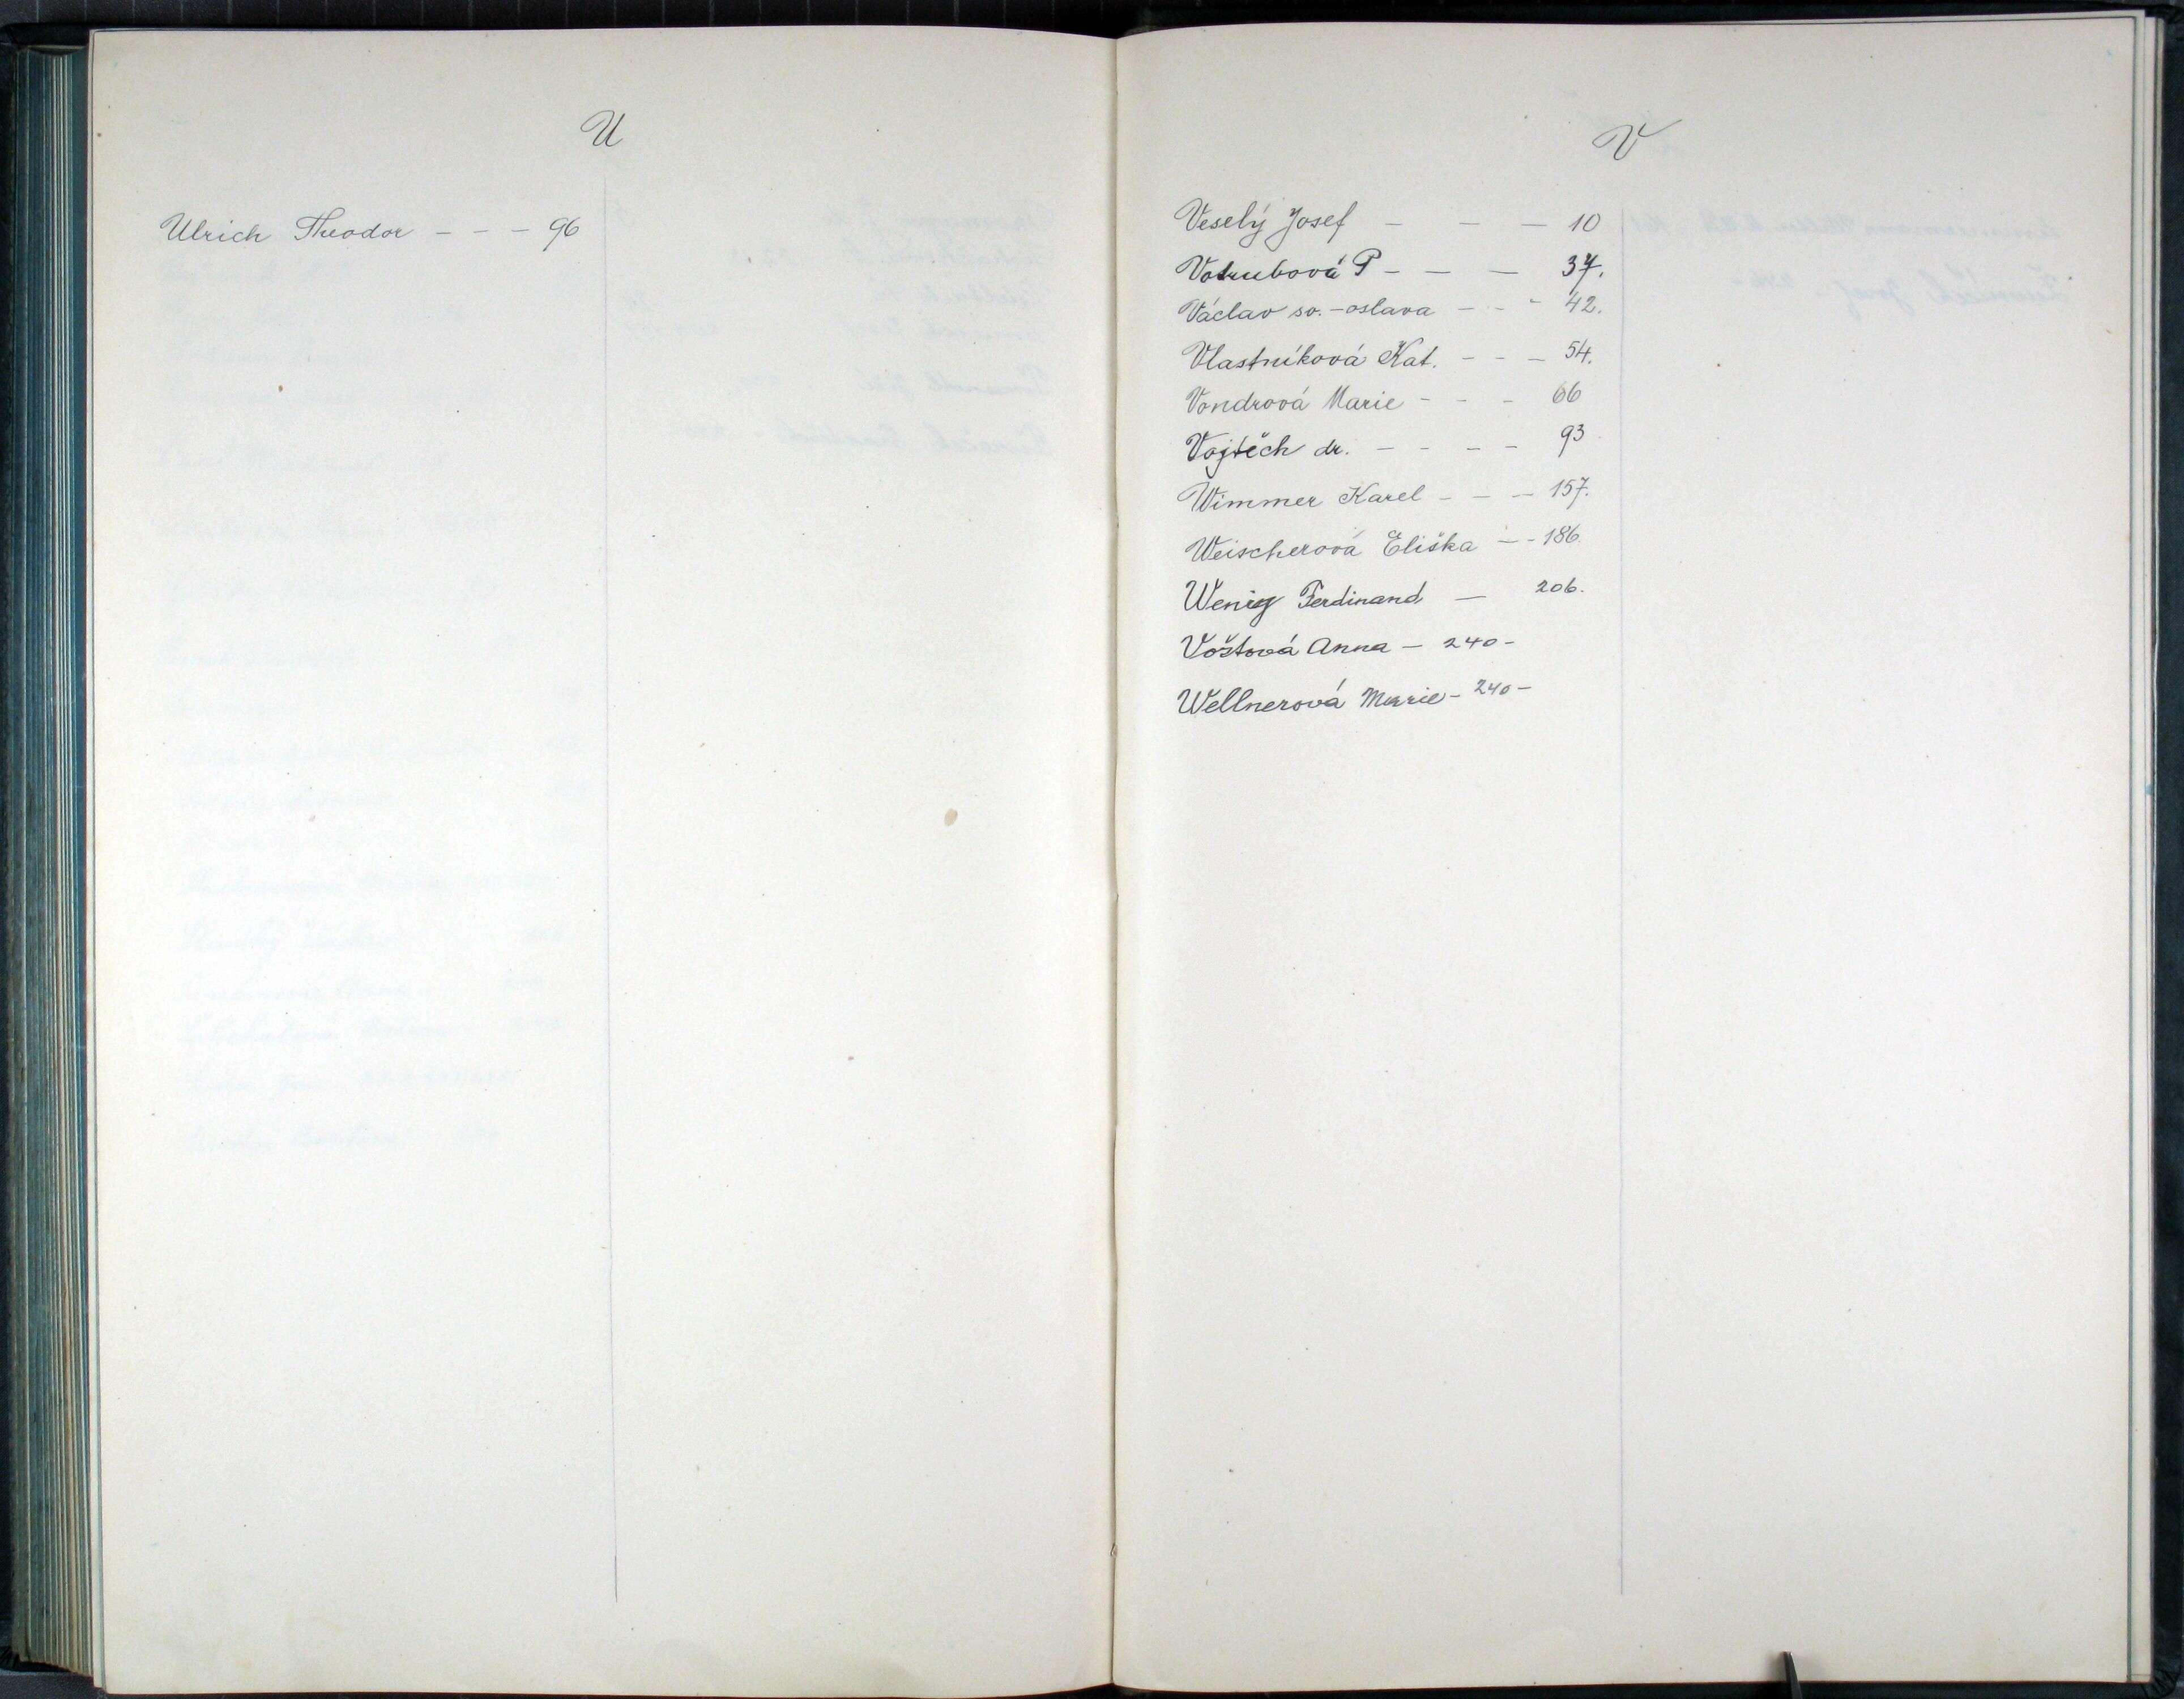 U
Ulrich Theodor - - - 96
V
Veselý Josef - - - 10
Votrubová P - - - 37.
Václav sv. - oslava - - - 42.
Vlastníková Kat. - - - 54.
Vondrová Marie - - - 66
Vojtěch dr. - - - - 93
Wimmer Karel - - - 157.
Weischerová Eliška - - 186.
Wenig Ferdinand - 206.
Voštová Anna - 240 -
Wellnerová Marie - 240 -